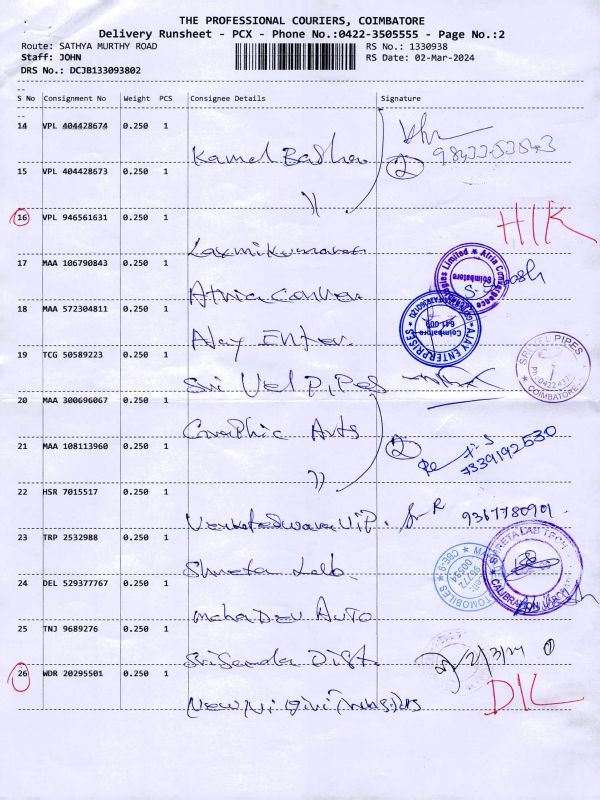 THE PROFESSIONAL COURIERS, COIMBATORE
Delivery Runsheet - PCX - Phone No.:0422-3505555 - Page No.:2
Route: SATHYA MURTHY ROAD RS No.: 1330938
Staff: JOHN RS Date: 02-Mar-2024
DRS No.: DCJB133093802
S No Consignment No Weight PCS Consignee Details Signature
14 VPL 404428674 0.250 1
Kamal
15 VPL 404428673 0.250 1
2
16 VPL 946561631 0.250 1
Laxmikumaran
H/K
17 MAA 106790843 0.250 1
Atria
18 MAA 572304811 0.250 1
Ajay Enter
AJAY ENTERPRISES
Coimbatore
19 TCG 50589223 0.250 1
Sri Vel Pipes
SRI VEL PIPES
COIMBATORE
20 MAA 300696067 0.250 1
Graphic Arts
21 MAA 108113960 0.250 1
2
7339192530
22 HSR 7015517 0.250 1
9367780901
23 TRP 2532988 0.250 1
Shreeta Lab
24 DEL 529377767 0.250 1
Mahadev Auto
25 TNJ 9689276 0.250 1
2/3/24
26 WDR 20295501 0.250 1
D/L